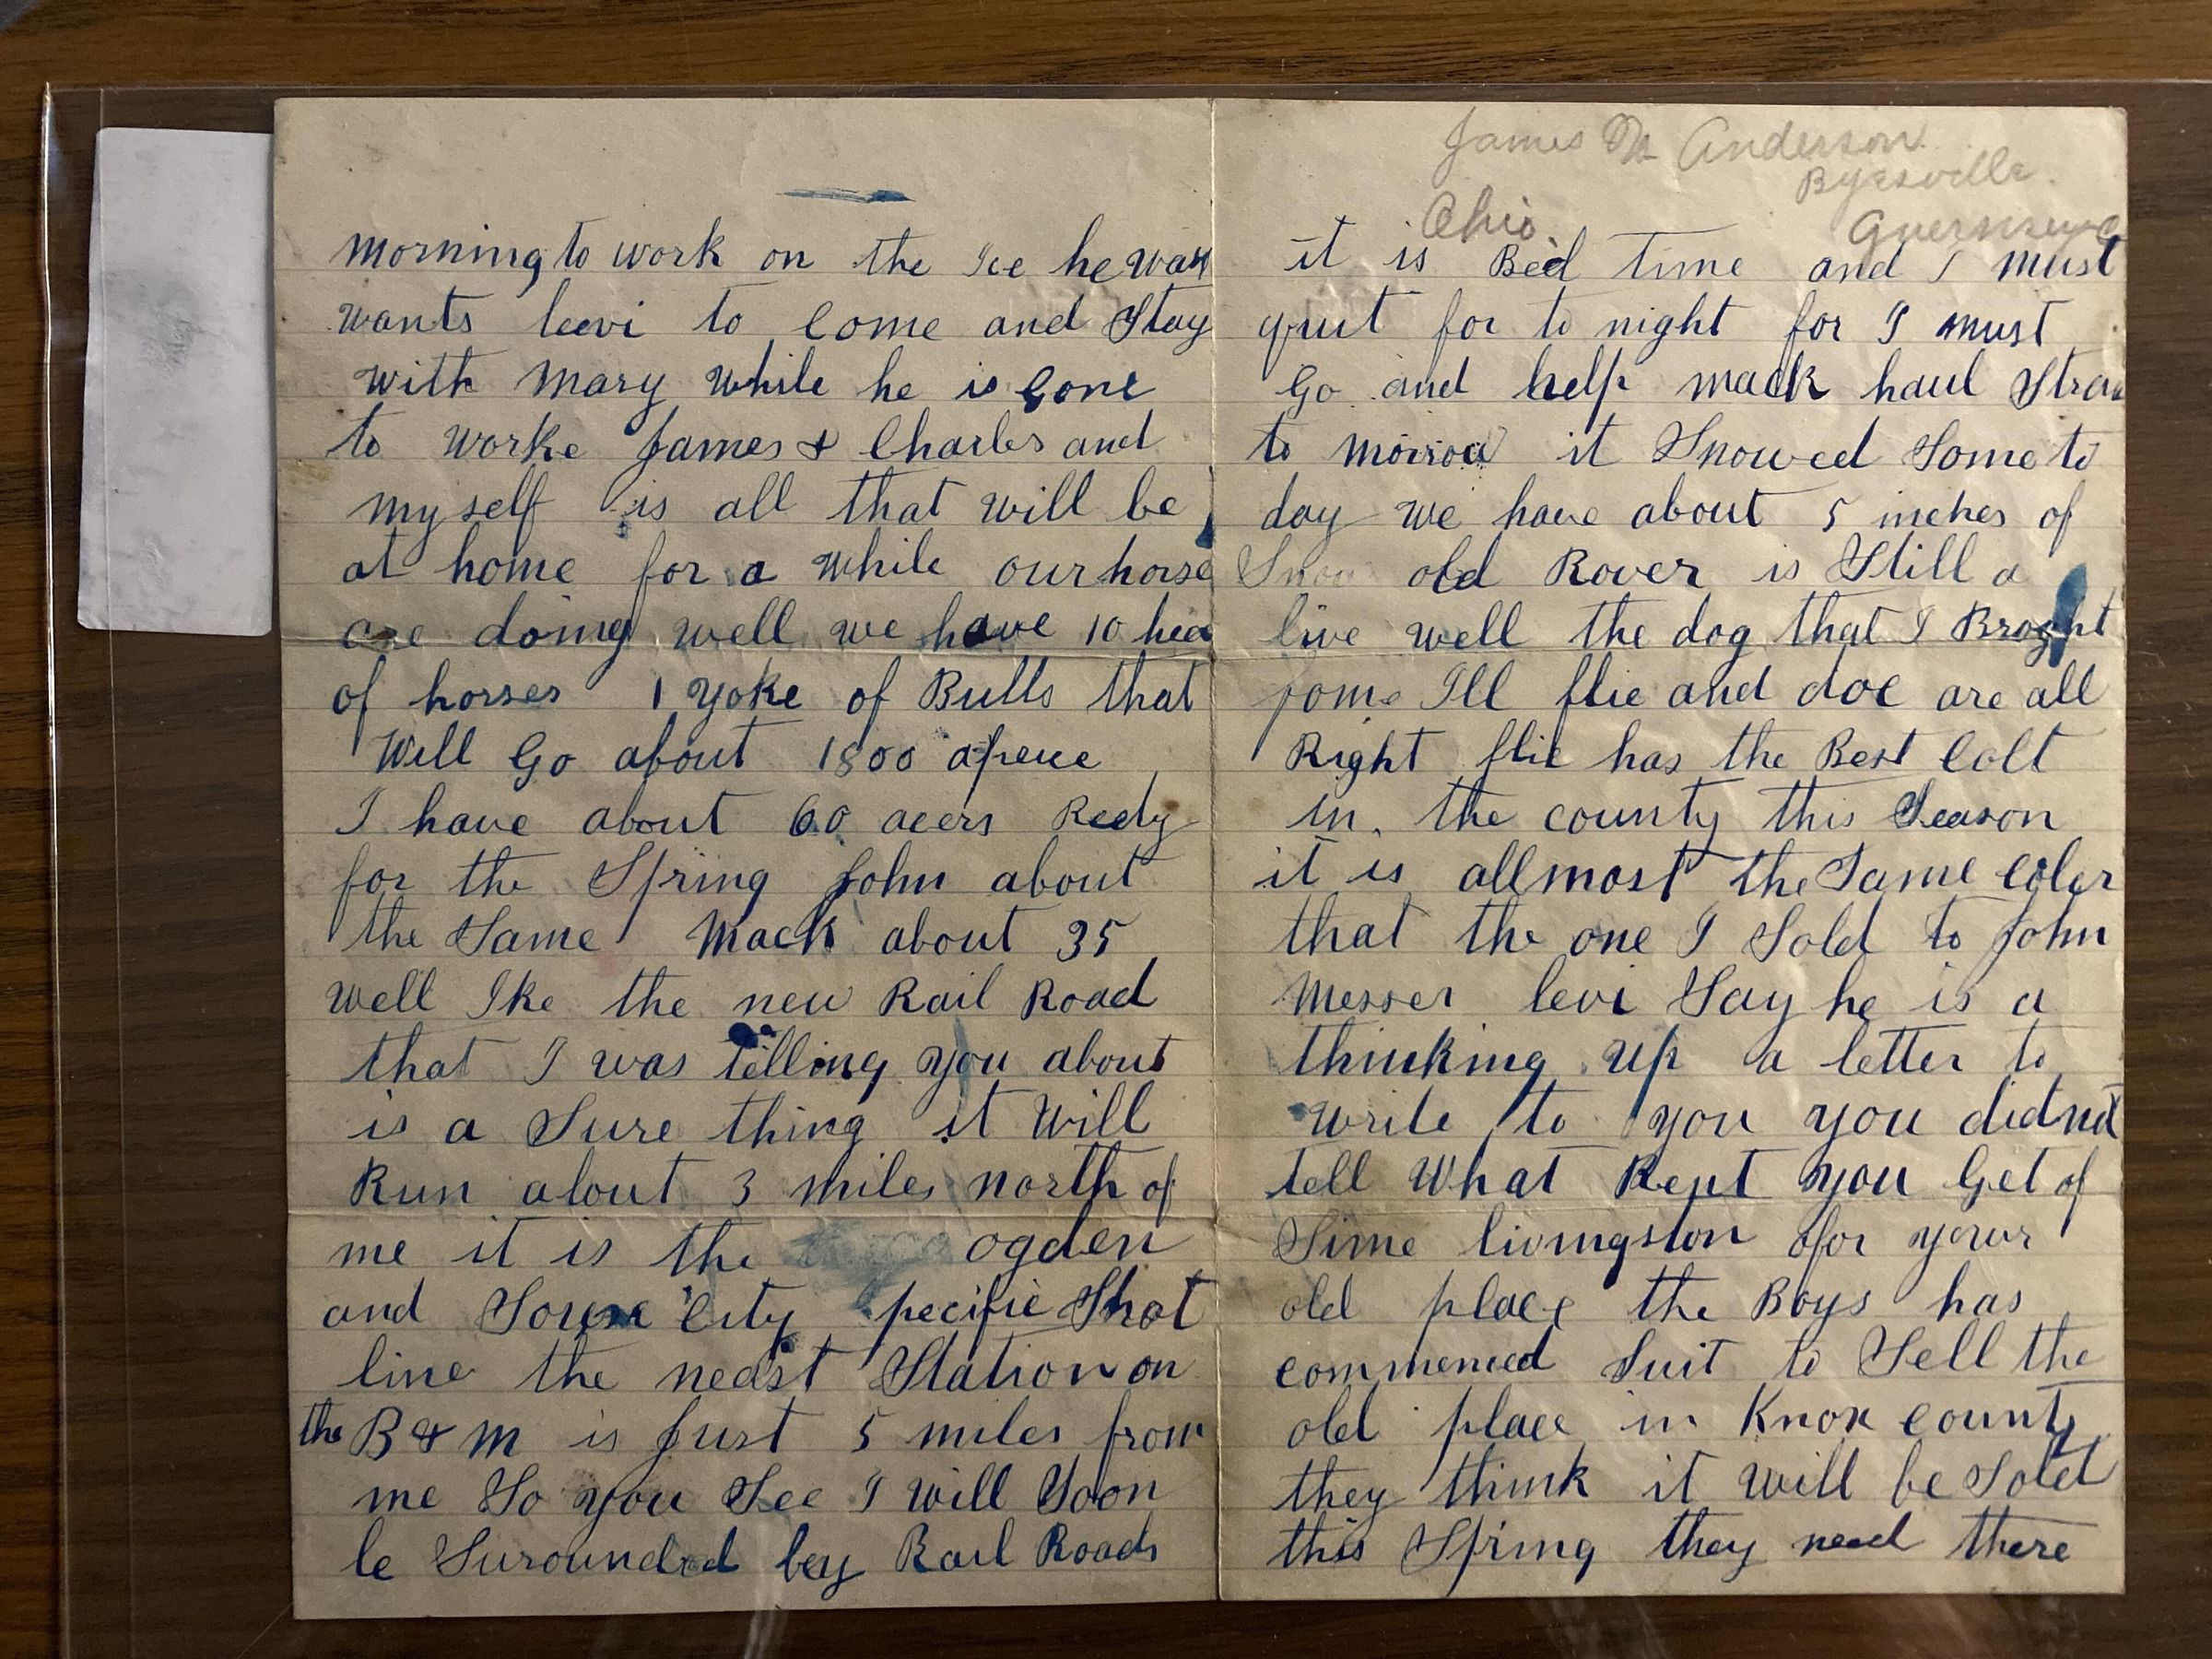 morning to work on the Ice he
wants leevi to Come and Stay
with Mary while he is Gone
to worke James & Charles and
my self is all that will be
at home for a while our horse
are doing well we have 10 hea
of horses 1 yoke of Bulls that
Will Go about 1800 apeice
I have about 60 acers Redy
for the Spring John about
the Same Mack about 35
well Ike the new Rail Road
that I was telling you about
is a Sure thing it Will
Run about 3 miles north of
me it is the ogden
and City pecific Shot
line the neast Station on
the B & M is Just 5 miles from
me So you See I will Soon
be Suroundrd bey Rail Roads
James M Anderson
Byesville.
Ohio. Guernsey
it is Bed time and I must
quit for to night for I must
Go and help mack haul Straw
to morrow it Snowed Some to
day we have about 5 inches of
Snow old Rover is Still a
live well the dog that I Broght
from Ill flie and doc are all
Right flie has the Best Colt
in the county this Season
it is allmost the Same Coler
that the one I Sold to John
Messer levi Say he is a
thinking up a letter to
write to you you didnt
tell What Kept you Get of
Sime livingston for your
old place the Boys has
commenced Suit to Sell the
old place in Knox county
they think it will be Sold
this Spring they need there